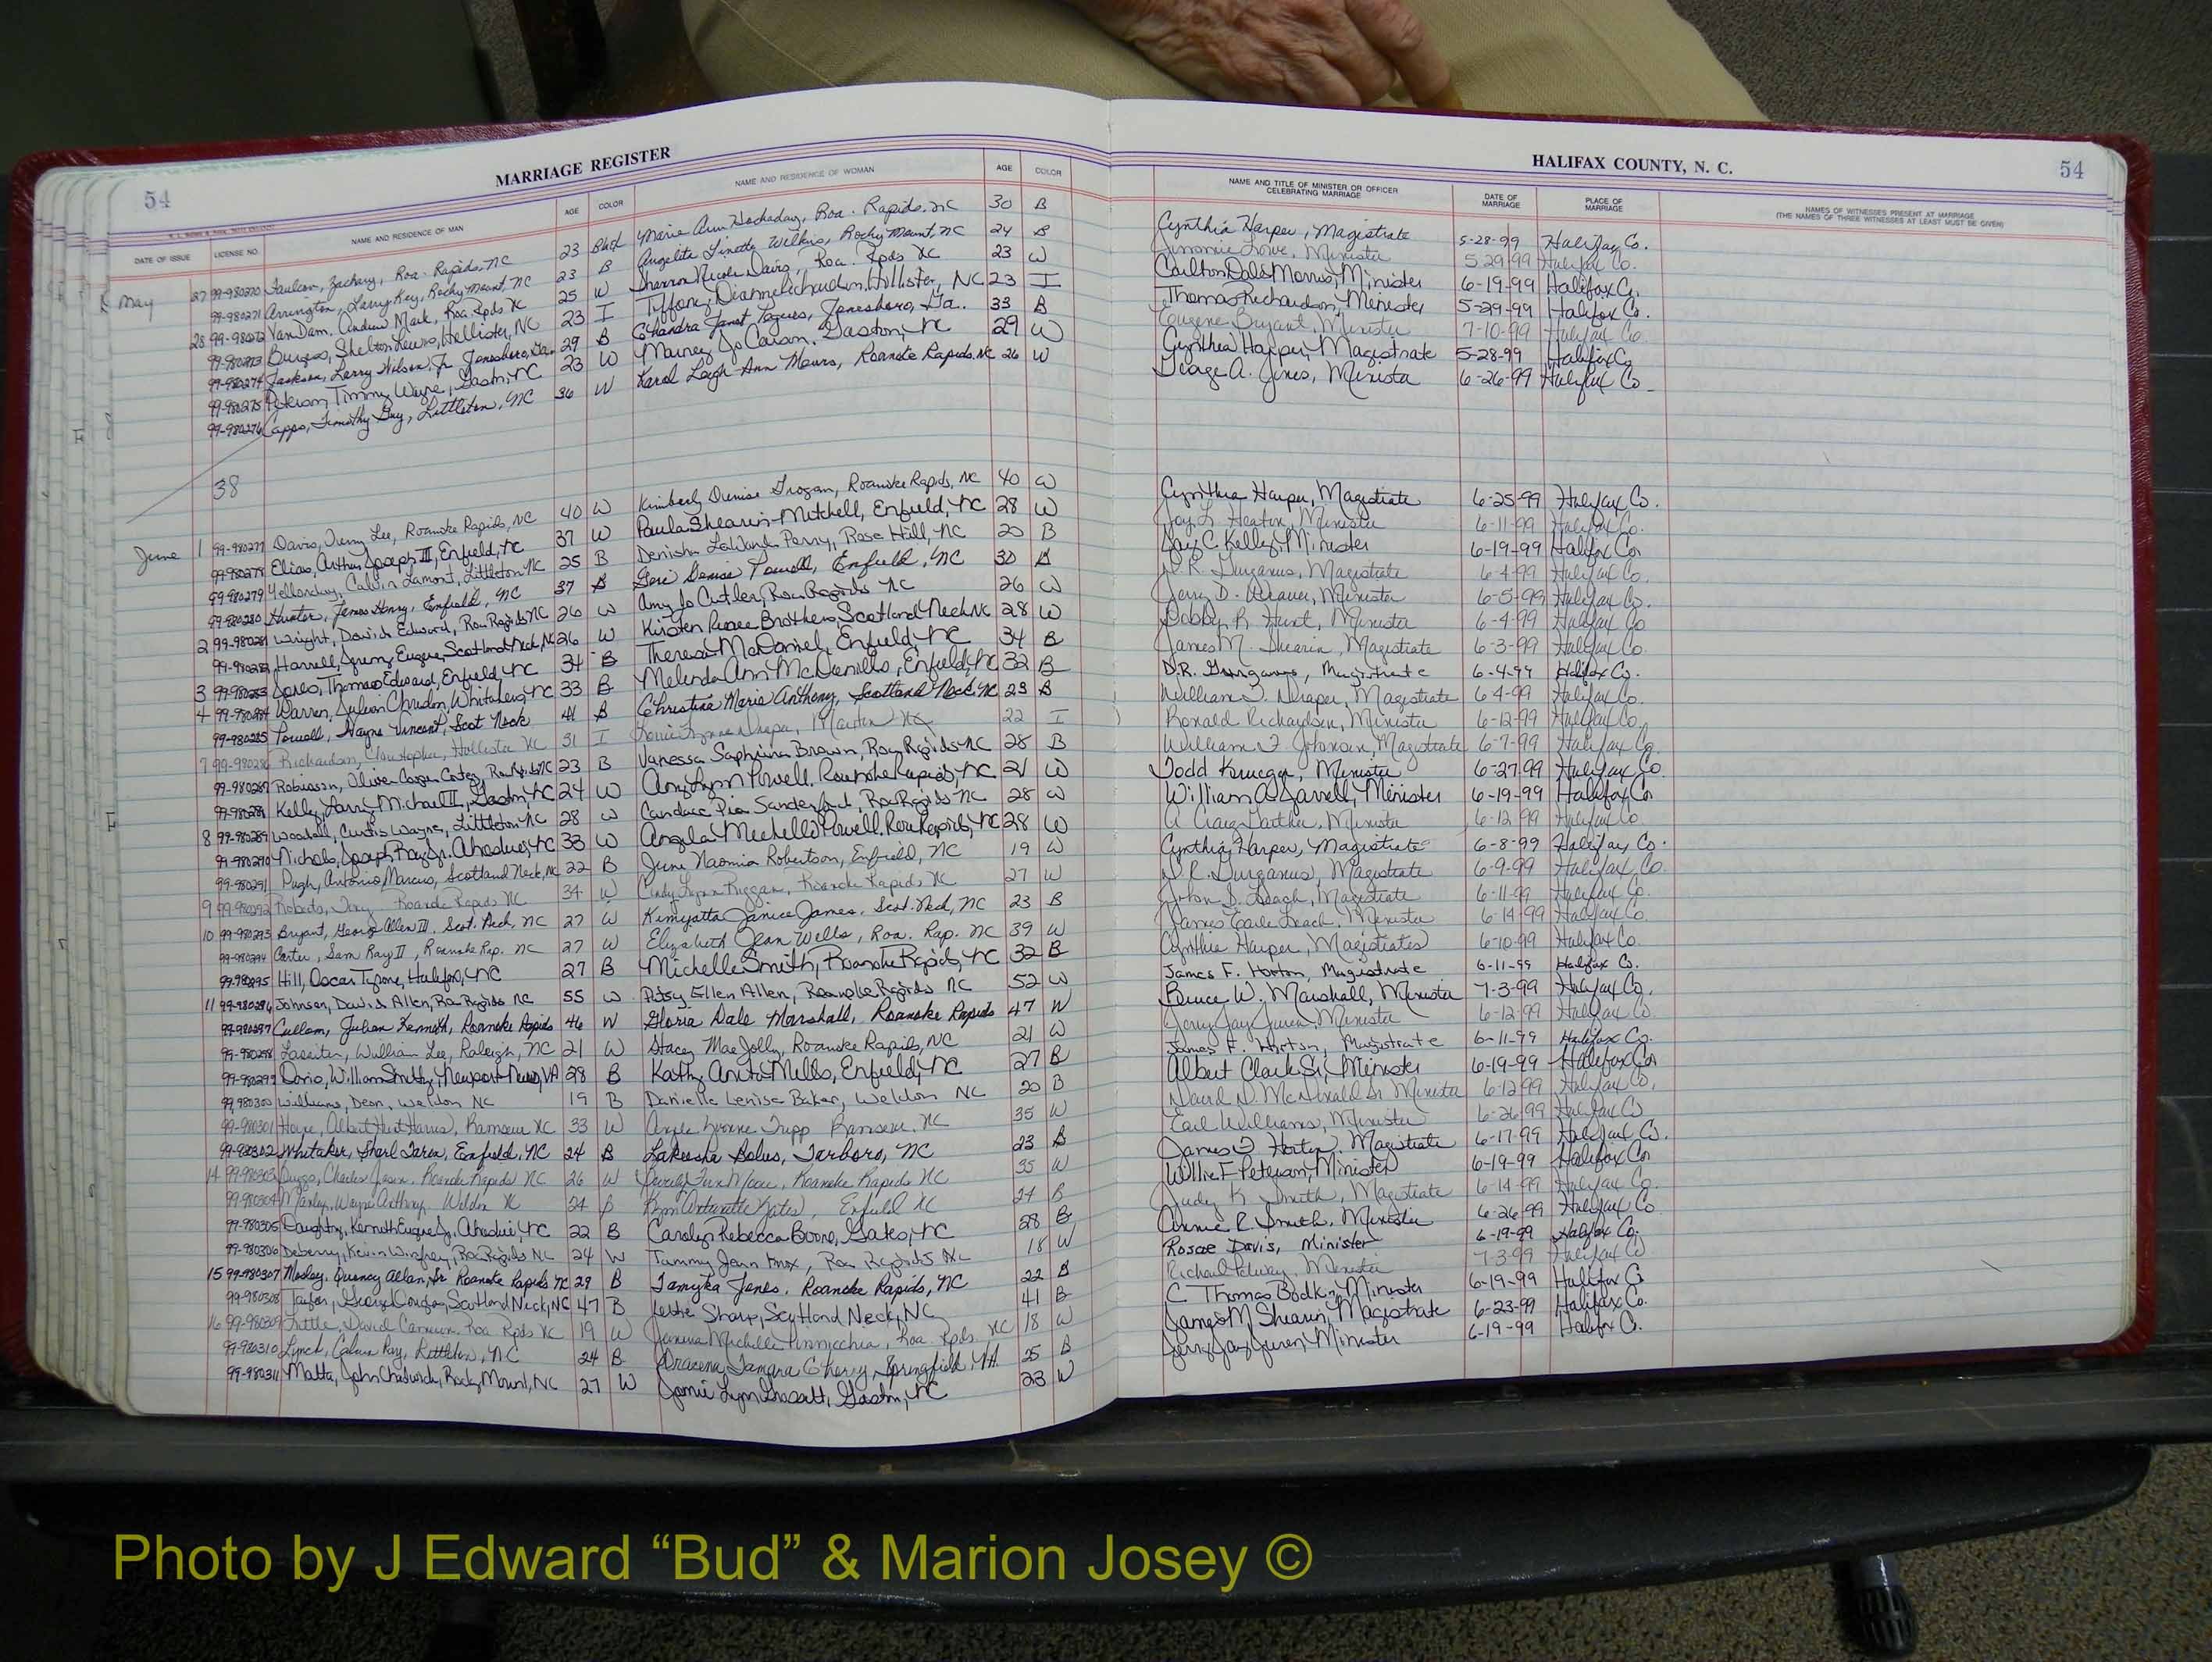 54
MARRIAGE REGISTER
DATE OF ISSUE LICENSE NO. NAME AND RESIDENCE OF MAN AGE COLOR NAME AND RESIDENCE OF WOMAN AGE COLOR
May 27 99-980270 Faulcon, Zachary, Roa. Rapids, NC 23 Marie Ann Hockaday, Roa. Rapids, NC 30 B
99-980271 Arrington, Larry Key, Rocky Mount, NC 23 B Angelita Linette Wilkins, Rocky Mount, NC 24 B
28 99-980272 VanDam, Andrew Mark, Roa. Rpds NC 25 W Sharron Nicole Davis, Roa. Rpds NC 23 W
99-980273 Burgess, Shelton Lewis, Hollister, NC 23 I Tiffani Dianne Richardson, Hollister, NC 23 I
99-980274 Jackson, Larry Wilson, Jr. Jonesboro, Ga. 29 B Chandra Janet Jonesboro, Ga. 33 B
99-980275 Timmy Wayne, Gaston, NC 23 W Jo Gaston, NC 29 W
99-980276 Capps, Timothy Guy, Littleton, NC 36 W Karol Leigh-Ann Roanoke Rapids, NC 26 W
38
June 1 99-980277 Davis, Lee, Roanoke Rapids, NC 40 W Kimberly Denise Grogan, Roanoke Rapids, NC 40 W
99-980278 Elias, Arthur Joseph III, Enfield, NC 37 W Paula Shearin-Mitchell, Enfield, NC 28 W
99-980279 Calvin Lamont, Littleton NC 25 B Denisha Perry, Rose Hill, NC 20 B
99-980280 Hunter, James Henry, Enfield, NC 37 B Geri Denise Powell, Enfield, NC 30 B
2 99-980281 Wright, David Edward, Roa Rapids NC 26 W Amy Jo Cutler, Roa Rapids NC 26 W
99-980282 Harrell, Jeremy Eugene, Scotland Neck, NC 26 W Kirsten Brothers, Scotland Neck NC 28 W
3 99-980283 Jones, Thomas Edward, Enfield, NC 34 B Theresa McDaniel, Enfield, NC 34 B
4 99-980284 Warren, Whitakers, NC 33 B Melinda Ann Enfield, NC 32 B
99-980285 Powell, Wayne Vincent, Scot Neck 41 B Christina Marie Anthony, Scotland Neck, NC 23 B
7 99-980286 Richardson, Christopher, Hollister NC 31 I 22 I
99-980287 Robinson, Oliver Cortez, Roa Rapids NC 23 B Vanessa Saphrina Brown, Roa Rapids NC 28 B
99-980288 Kelly, Larry Michael II, Gaston, NC 24 W Amy Lynn Powell, Roanoke Rapids, NC 21 W
8 99-980289 Woodall, Curtis Wayne, Littleton NC 28 W Candace Pia Roa Rapids NC 28 W
99-980290 Nichols, Joseph Ray Jr. Ahoskie, NC 33 W Angela Mechelle Powell, Roa Rapids, NC 28 W
99-980291 Pugh, Antonio Marcus, Scotland Neck, NC 22 B June Naomia Robertson, Enfield, NC 19 W
9 99-980292 Roberts, Roanoke Rapids NC 34 W Cindy Lynn Riggan, Roanoke Rapids NC 27 W
10 99-980293 Bryant, George Allen III, Scot. Neck, NC 27 W Kimyatta Janice James, Scot. Neck, NC 23 B
99-980294 Carter, Sam Ray II, Roanoke Rap. NC 27 W Elizabeth Jean Wells, Roa. Rap. NC 39 W
99-980295 Hill, Oscar Tyrone, Halifax, NC 27 B Michelle Smith, Roanoke Rapids, NC 32 B
11 99-980296 Johnson, David Allen, Roa Rapids NC 55 W Patsy Ellen Allen, Roanoke Rapids NC 52 W
99-980297 Cullom, Julian Kenneth, Roanoke Rapids 46 W Gloria Dale Marshall, Roanoke Rapids 47 W
99-980298 Lassiter, William Lee, Raleigh, NC 21 W Stacey Mae Jolly, Roanoke Rapids, NC 21 W
99-980299 Davis, William Newport News, VA 28 B Kathy Anita Mills, Enfield, NC 27 B
99-980300 Williams, Deon, Weldon NC 19 B Danielle Lenise Baker, Weldon NC 20 B
99-980301 Ramseur NC 33 W Angela Yvonne Tripp Ramseur, NC 35 W
99-980302 Whitaker, Enfield, NC 24 B Lakeesha Tarboro, NC 23 B
14 99-980303 Charles Jason, Roanoke Rapids NC 26 W Roanoke Rapids NC 35 W
99-980304 Manley, Wayne Anthony, Weldon NC 24 B Enfield NC 24 B
99-980305 Daughtry, Kenneth Eugene Jr. Ahoskie, NC 22 B Carolyn Rebecca Boone, Gates, NC 28 B
99-980306 Deberry, Kevin Winfrey, Roa Rapids NC 24 W Tammy Jean Knox, Roa Rapids NC 18 W
15 99-980307 Mosley, Quincy Allan, Sr. Roanoke Rapids NC 29 B Tamyka Jones, Roanoke Rapids, NC 22 B
99-980308 Taylor, George Scotland Neck, NC 47 B Leslie Sharp, Scotland Neck, NC 41 B
16 99-980309 Little, David Cameron, Roa Rpds NC 19 W Michelle Roa. Rpds. NC 18 W
99-980310 Lynch, Calvin Ray, Littleton, NC 24 B Dracena Tamara Cherry, Springfield, MA 25 B
99-980311 Matta, John Chadwick, Rocky Mount, NC 27 W Jamie Lynn Gossett, Gaston, NC 23 W
HALIFAX COUNTY, N. C. 54
NAME AND TITLE OF MINISTER OR OFFICER CELEBRATING MARRIAGE DATE OF MARRIAGE PLACE OF MARRIAGE NAMES OF WITNESSES PRESENT AT MARRIAGE
(THE NAMES OF THREE WITNESSES AT LEAST MUST BE GIVEN)
Cynthia Harper, Magistrate 5-28-99 Halifax Co.
Jimmie Lowe, Minister 5 29 99 Halifax Co.
Carlton Dale Morris, Minister 6-19-99 Halifax Co.
Thomas Richardson, Minister 5-29-99 Halifax Co.
Eugene Bryant, Minister 7-10-99 Halifax Co
Cynthia Harper, Magistrate 5-28-99 Halifax Co
George A. Jones, Minister 6-26-99 Halifax Co
Cynthia Harper, Magistrate 6-25-99 Halifax Co.
Jay L. Heaton, Minister 6-11-99 Halifax Co.
Jay C. Kelley, Minister 6-19-99 Halifax Co.
D.R. Gurganus, Magistrate 6-4-99 Halifax Co.
Jerry D. Weaver, Minister 6-5-99 Halifax Co.
Bobby R. Hunt, Minister 6-4-99 Halifax Co
James M. Shearin, Magistrate 6-3-99 Halifax Co.
D.R. Gurganus, Magistrate 6-4-99 Halifax Co.
William J. Draper, Magistrate 6-4-99 Halifax Co.
Ronald Richardson, Minister 6-12-99 Halifax Co.
William F. Johnson, Magistrate 6-7-99 Halifax Co.
Todd Krueger, Minister 6-27-99 Halifax Co.
William A. Jarrell, Minister 6-19-99 Halifax Co.
Craig Minister 6-12-99 Halifax Co
Cynthia Harper, Magistrate 6-8-99 Halifax Co.
D.R. Gurganus, Magistrate 6-9-99 Halifax Co.
John S. Magistrate 6-11-99 Halifax Co.
James Earle Leach, Minister 6-14-99 Halifax Co
Cynthia Harper, Magistrate 6-10-99 Halifax Co.
James F. Horton, Magistrate 6-11-99 Halifax Co.
Bruce W. Marshall, Minister 7-3-99 Halifax Co.
Jerry Jay Minister 6-12-99 Halifax Co.
James F. Horton, Magistrate 6-11-99 Halifax Co.
Albert Clark Sr., Minister 6-19-99 Halifax Co
David D. McDonald Sr Minister 6-12-99 Halifax Co.
Earl Williams, Minister 6-26-99 Halifax Co
James F. Horton, Magistrate 6-17-99 Halifax Co.
Willie F. Peterson, Minister 6-19-99 Halifax Co
Judy K. Smith, Magistrate 6-14-99 Halifax Co.
Annie R. Smith, Minister 6-26-99 Halifax Co
Roscoe Davis, Minister 6-19-99 Halifax Co.
Richard Minister 7-3-99 Halifax Co
C. Thomas Minister 6-19-99 Halifax Co
James M. Shearin, Magistrate 6-23-99 Halifax Co.
Jerry Jay Minister 6-19-99 Halifax Co.
Photo by J Edward “Bud” & Marion Josey ©